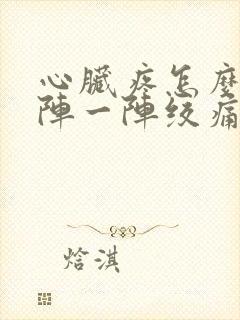 心臟疼怎麼
陣一陣绞痛
焓淇